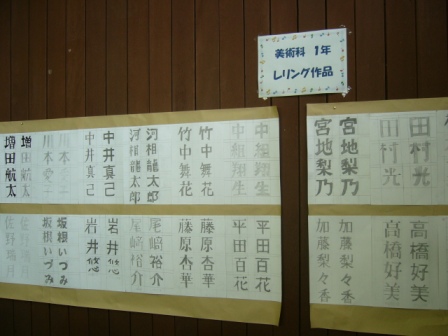 美術科 1年
レリング作品
田村光
田村光
宮地梨乃
宮地梨乃
中組翔生
中組翔生
竹中舞花
竹中舞花
河相龍太郎
河相龍太郎
中井真己
中井真己
川本
増田航太
増田航太
高橋好美
高橋好美
加藤梨々香
加藤梨々香
平田百花
平田百花
藤原杏華
藤原杏華
尾崎裕介
尾崎裕介
岩井悠
岩井悠
坂根いづみ
坂根いづみ